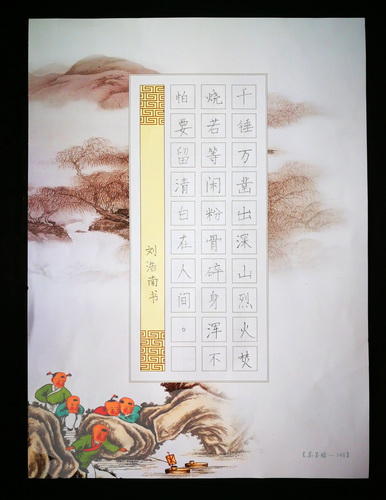 千锤万凿出深山烈火焚
烧若等闲粉骨碎身浑不
怕要留清白在人间。
刘浩南书